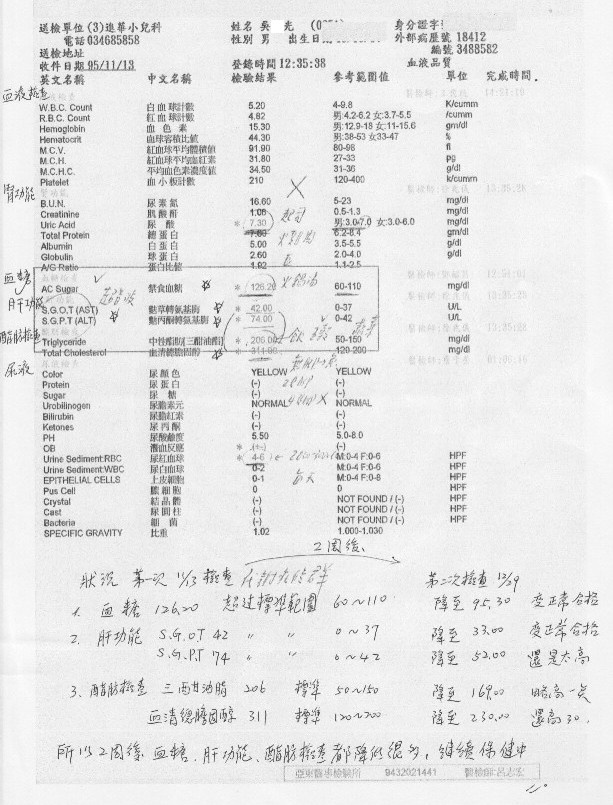 送檢單位 (3)進華小兒科 姓名 吳 先 身分證字:
電話 034685858 性別 男 出生日 外部病歷號 18412
送檢地址 編號 3488582
收件日期 95/11/13 登錄時間 12:35:38 血液品質
英文名稱 中文名稱 檢驗結果 參考範圍值 單位 完成時間.
血液檢查
W.B.C. Count 白血球計數 5.20 4-9.8 K/cumm
R.B.C. Count 紅血球計數 4.82 男:4.2-6.2 女:3.7-5.5 /cumm
Hemoglobin 血 色 素 15.30 男:12.9-18 女:11-15.6 gm/dl
Hematocrit 血球容積比値 44.30 男:38-53 女:33-47 %
M.C.V. 紅血球平均體積値 91.90 80-98 fl
M.C.H. 紅血球平均血紅素 31.80 27-33 pg
M.C.H.C. 平均血色素濃度値 34.50 31-36 g/dl
Platelet 血小板計數 210 120-400 k/cumm
腎功能
B.U.N. 尿素氮 16.60 5-23 mg/dl
Creatinine 肌酸酐 1.06 0.5-1.3 mg/dl
Uric Acid 尿 酸 * 7.30 男:3.0-7.0 女:3.0-6.0 mg/dl
Total Protein 總蛋白 7.60 6.2-8.4 gm/dl
Albumin 白蛋白 5.00 3.5-5.5 g/dl
Globulin 球蛋白 2.60 2.0-4.0 g/dl
A/G Ratio 蛋白比値 1.92 1.1-2.5
血糖
AC Sugar 禁食血糖 * 126.20 60-110 mg/dl
肝功能
S.G.O.T (AST) 麩草轉氨基脢 * 42.00 0-37 U/L
S.G.P.T (ALT) 麩丙酮轉氨基脢 * 74.00 0-42 U/L
酯肪檢查
Triglyceride 中性醋肪(三酣油酯) * 206.00 50-150 mg/dl
Total Cholesterol 血清總膽固醇 * 311.00 120-200 mg/dl
尿液
Color 尿顏色 YELLOW YELLOW
Protein 尿蛋白 (-) (-)
Sugar 尿 糖 (-) (-)
Urobilinogen 尿膽素元 NORMAL NORMAL
Bilirubin 尿膽紅素 (-) (-)
Ketones 尿丙酮 (-) (-)
PH 尿酸鹼度 5.50 5.0-8.0
OB 潛血反應 * (-)
Urine Sediment:RBC 尿紅血球 * 4-6 M:0-4 F:0-6 HPF
Urine Sediment:WBC 尿白血球 0-2 M:0-4 F:0-6 HPF
EPITHELIAL CELLS 上皮細胞 0-1 M:0-4 F:0-8 HPF
Pus Cell 膿細胞 0 0 HPF
Crystal 結晶體 (-) NOT FOUND / (-) HPF
Cast 尿圓柱 (-) NOT FOUND / (-) HPF
Bacteria 細 菌 (-) NOT FOUND / (-) HPF
SPECIFIC GRAVITY 比重 1.02 1.000-1.030
2周後、
狀況 第一次 11/13 檢查 代謝症候群 第二次檢查 12/29
1. 血糖 126.20 超过標準範圍 60~110 降至 95.30 变正常合格
2. 肝功能 S.G.O.T 42 〃 〃 0~37 降至 33.00 变正常合格
S.G.P.T 74 〃 〃 0~42 降至 52.00 還是太高
3. 酯肪檢查 三酉甘油脂 206 標準 50~150 降至 169.00 略高一点
血清總膽固醇 311 標準 120~200 降至 230.00 還高30.
所以2周後 血糖、肝功能、酯肪檢查都降低很多, 継續保健中
亞東醫事檢驗所 9432021441 醫檢師:呂志宏